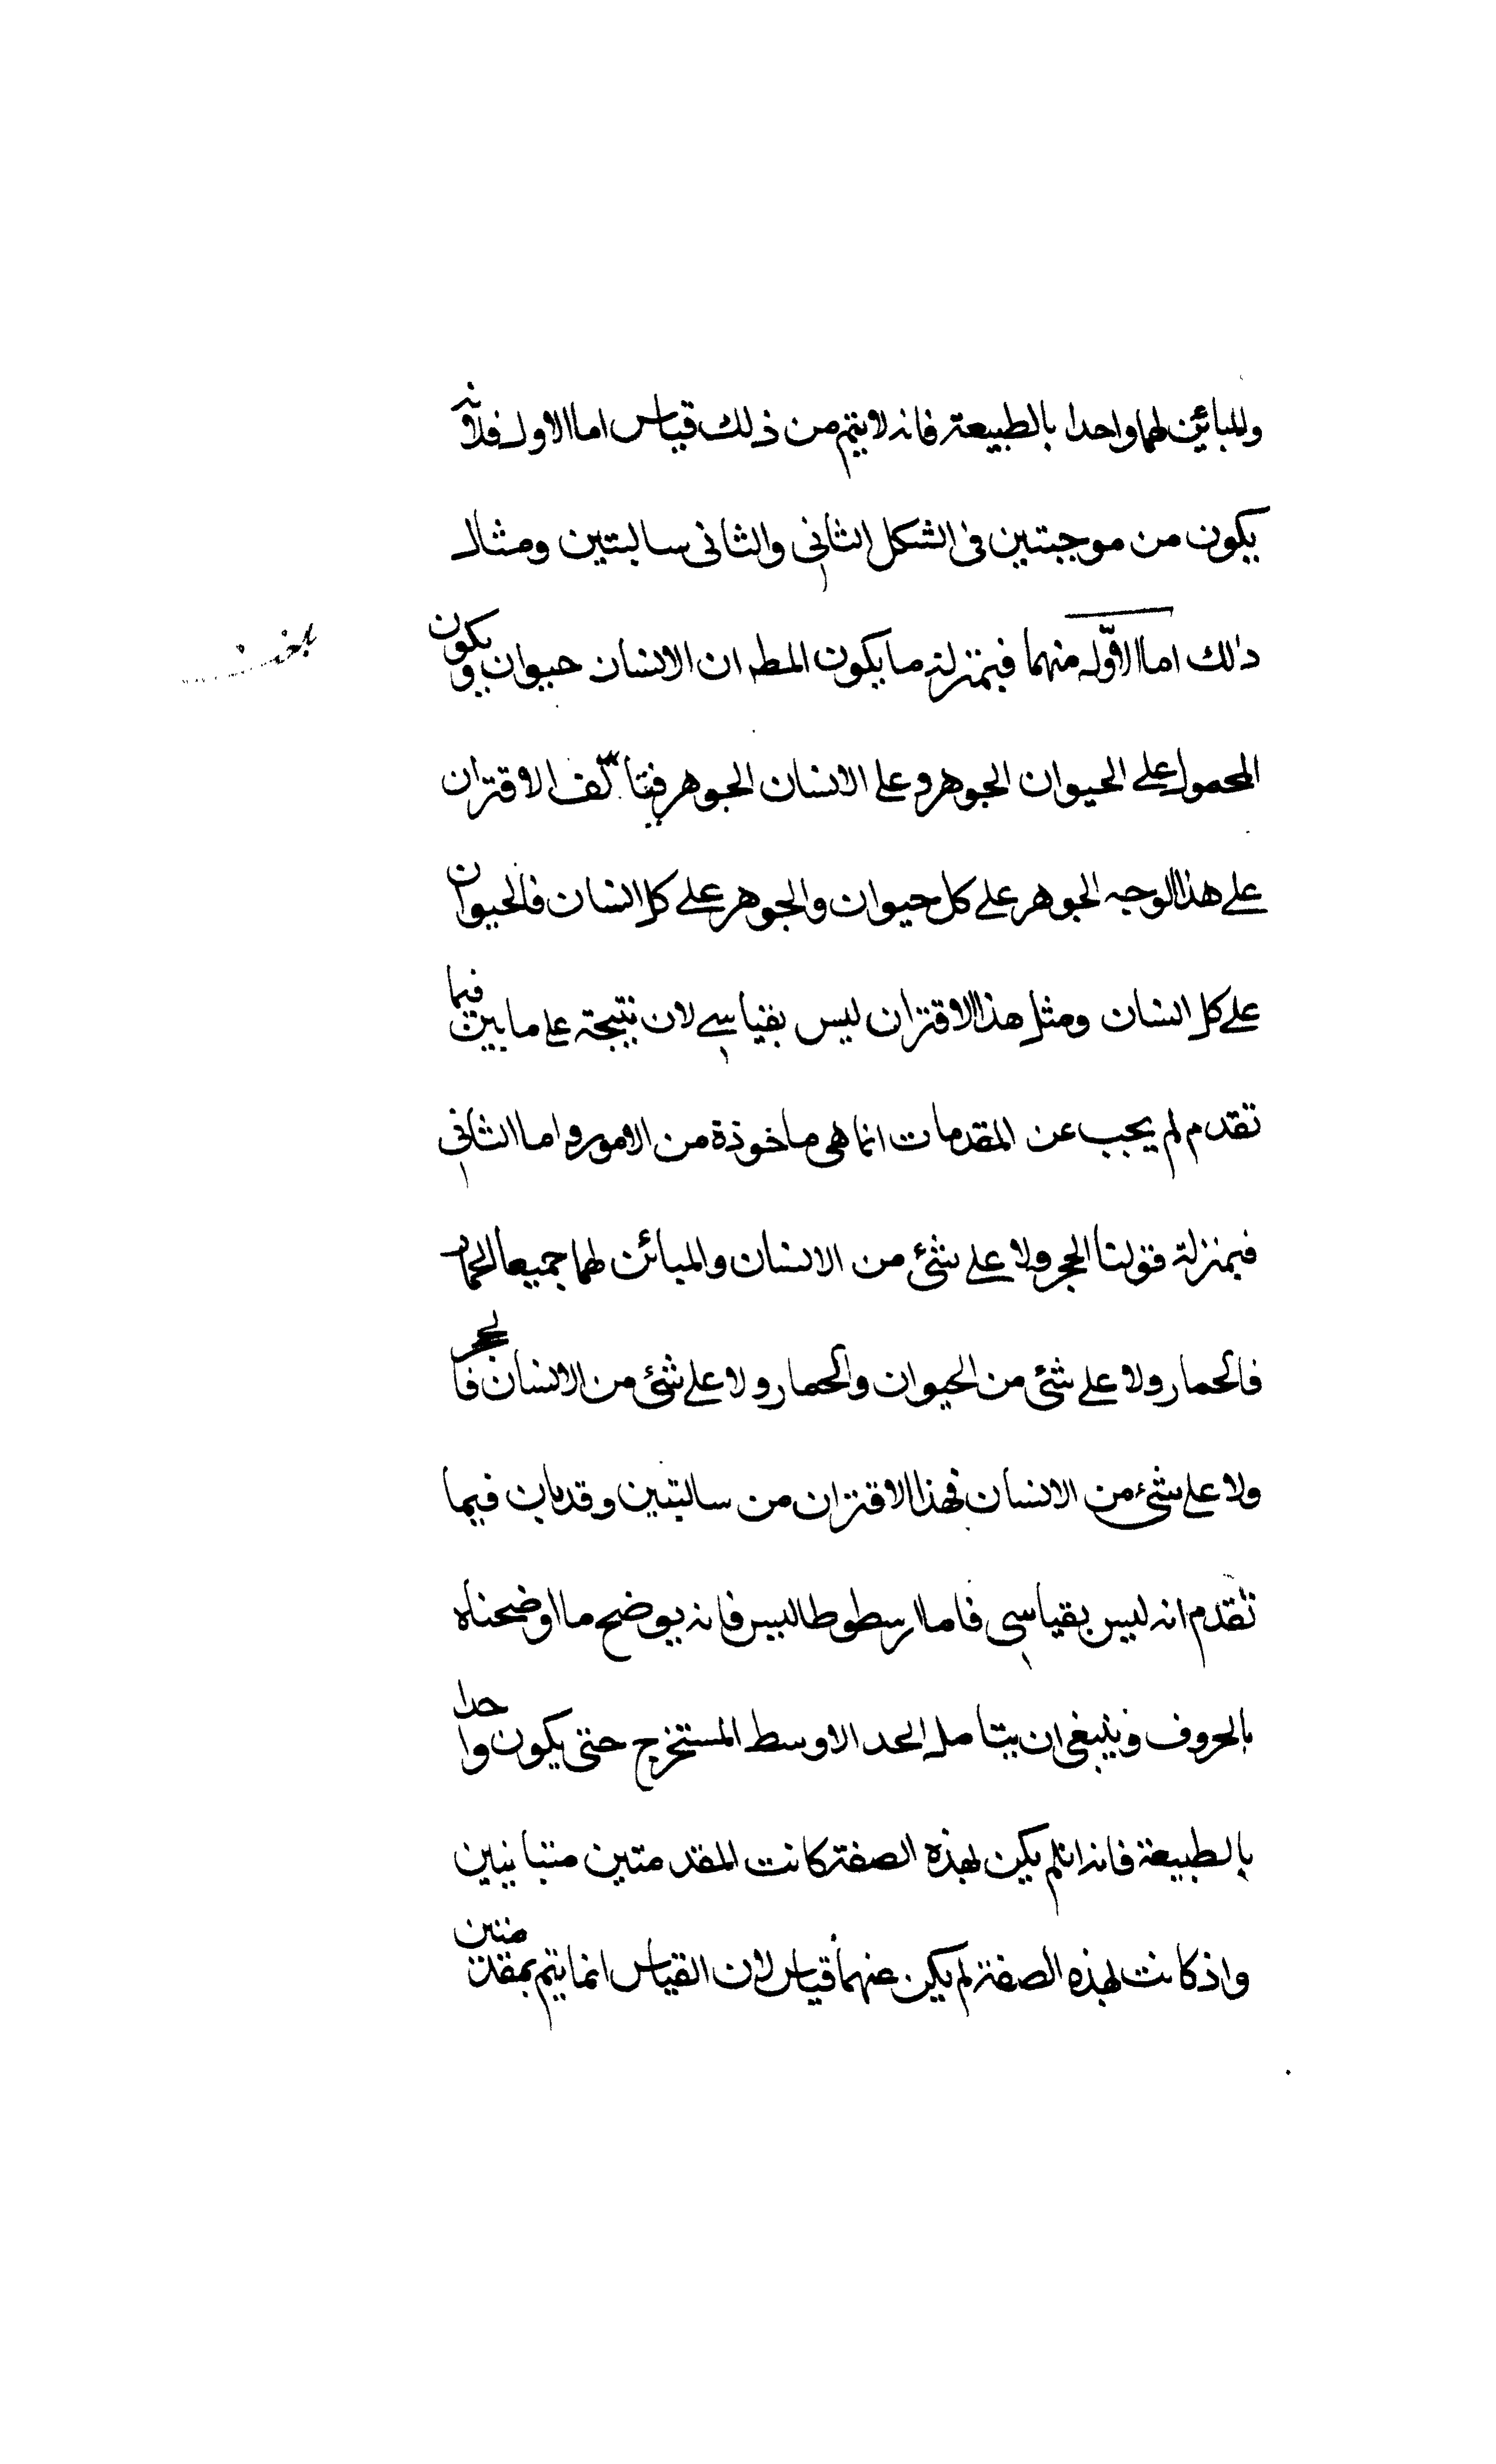 وللمبائن لهما واحدا بالطبيعة فانه لا يتم من ذلك قياس اما الاول فلانه
يكون من موجبتين فى الشكل الثانى والثانى سالبتين ومثال
ذلك اما الاول منهما فبمنزلة ما يكون المطه ان الانسان حيوان ويكون
المحمول على الحيوان الجوهر وعلى الانسان الجوهر فيتألف الاقتران
على هذا الوجه الجوهر على كل حيوان والجوهر على كل انسان فالحيوان
على كل انسان ومثل هذا الاقتران ليس بقياسى لان نتيجة على ما بين فيما
تقدم لم يجب عن المقدمات انما هى ماخوذة من الامور واما الثانى
فبمنزلة قولنا الحجر ولا على شئ من الانسان والمبائن لهما جميعا الحمار
فالحمار ولا على شئ من الحيوان والحمار ولا على شئ من الانسان فالحجر
ولا على شئ من الانسان فهذا الاقتران من سالبتين وقد بان فيما
تقدم انه ليس بقياسى فاما ارسطوطاليس فانه يوضح ما اوضحناه
بالحروف وينبغى ان يتامل الحد الاوسط المستخرج حتى يكون واحدا
بالطبيعة فانه ان لم يكن بهذه الصفة كانت المقدمتين متباينين
واذ كانت بهذه الصفة لم يكن عنهما قياس لان القياس انما يتم بمقدمتين